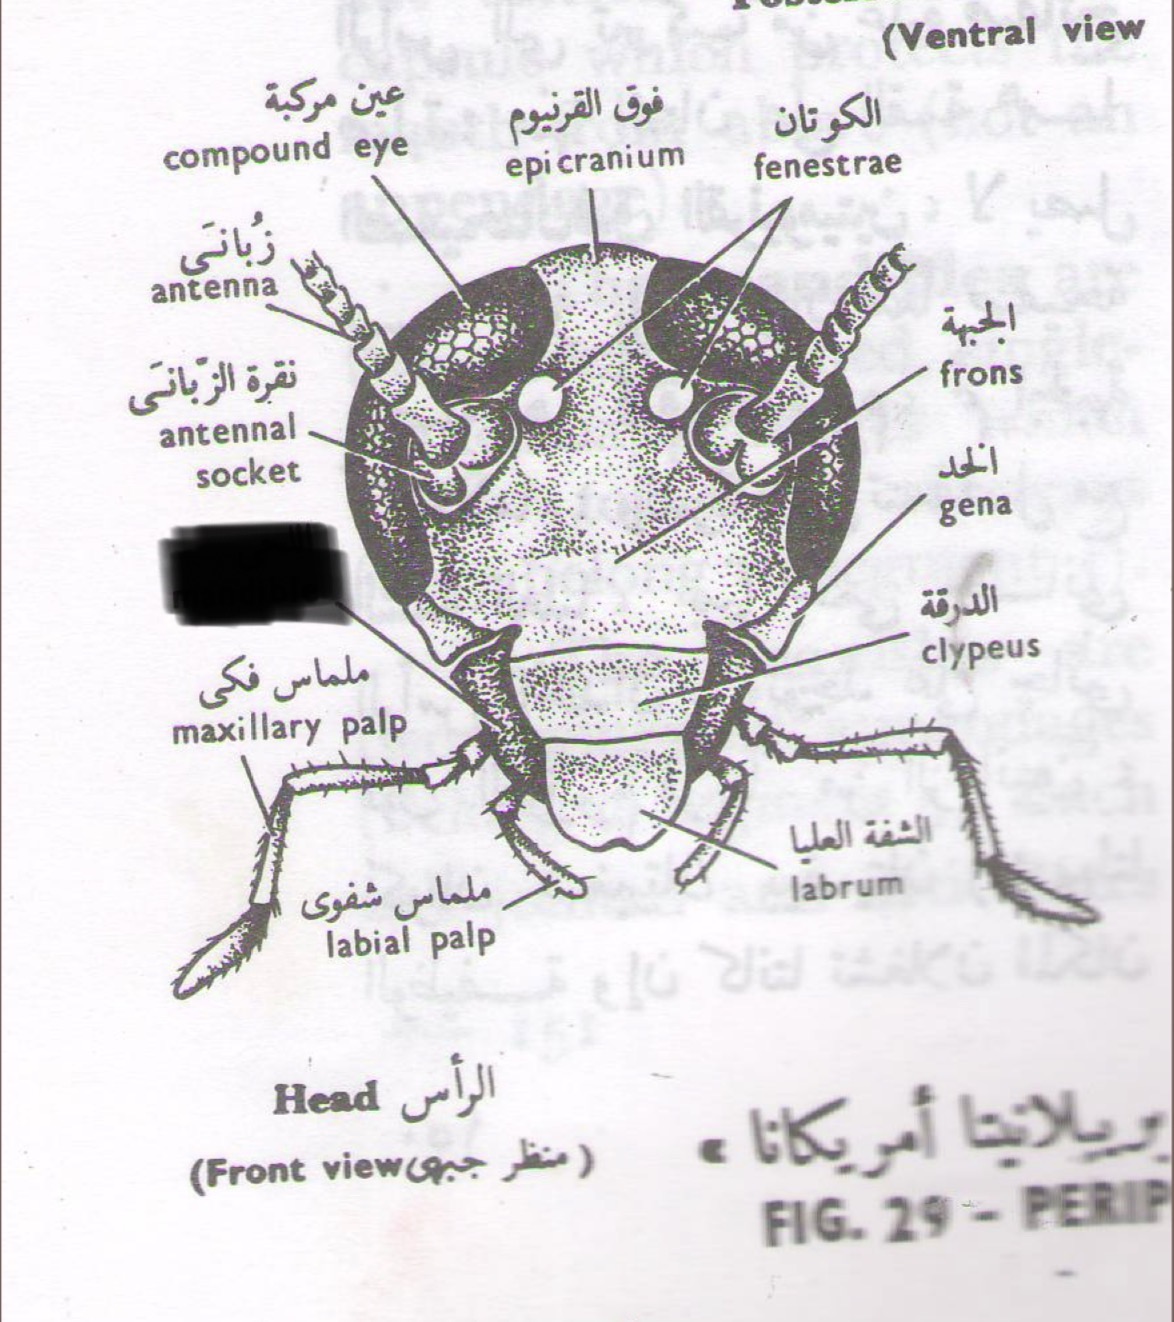 (Ventral view
عين مركبة
compound eye
فوق القرنيوم
epicranium
الكوتان
fenestrae
زُبانَى
antenna
الجبهة
frons
نقرة الزّبانَى
antennal
socket
الخد
gena
الدرقة
clypeus
ملماس فكى
maxillary palp
الشفة العليا
labrum
ملماس شفوى
labial palp
Head الرأس
(Front view منظر جبهى)
بريبلانيتا أمريكانا »
FIG. 29 - PERIP